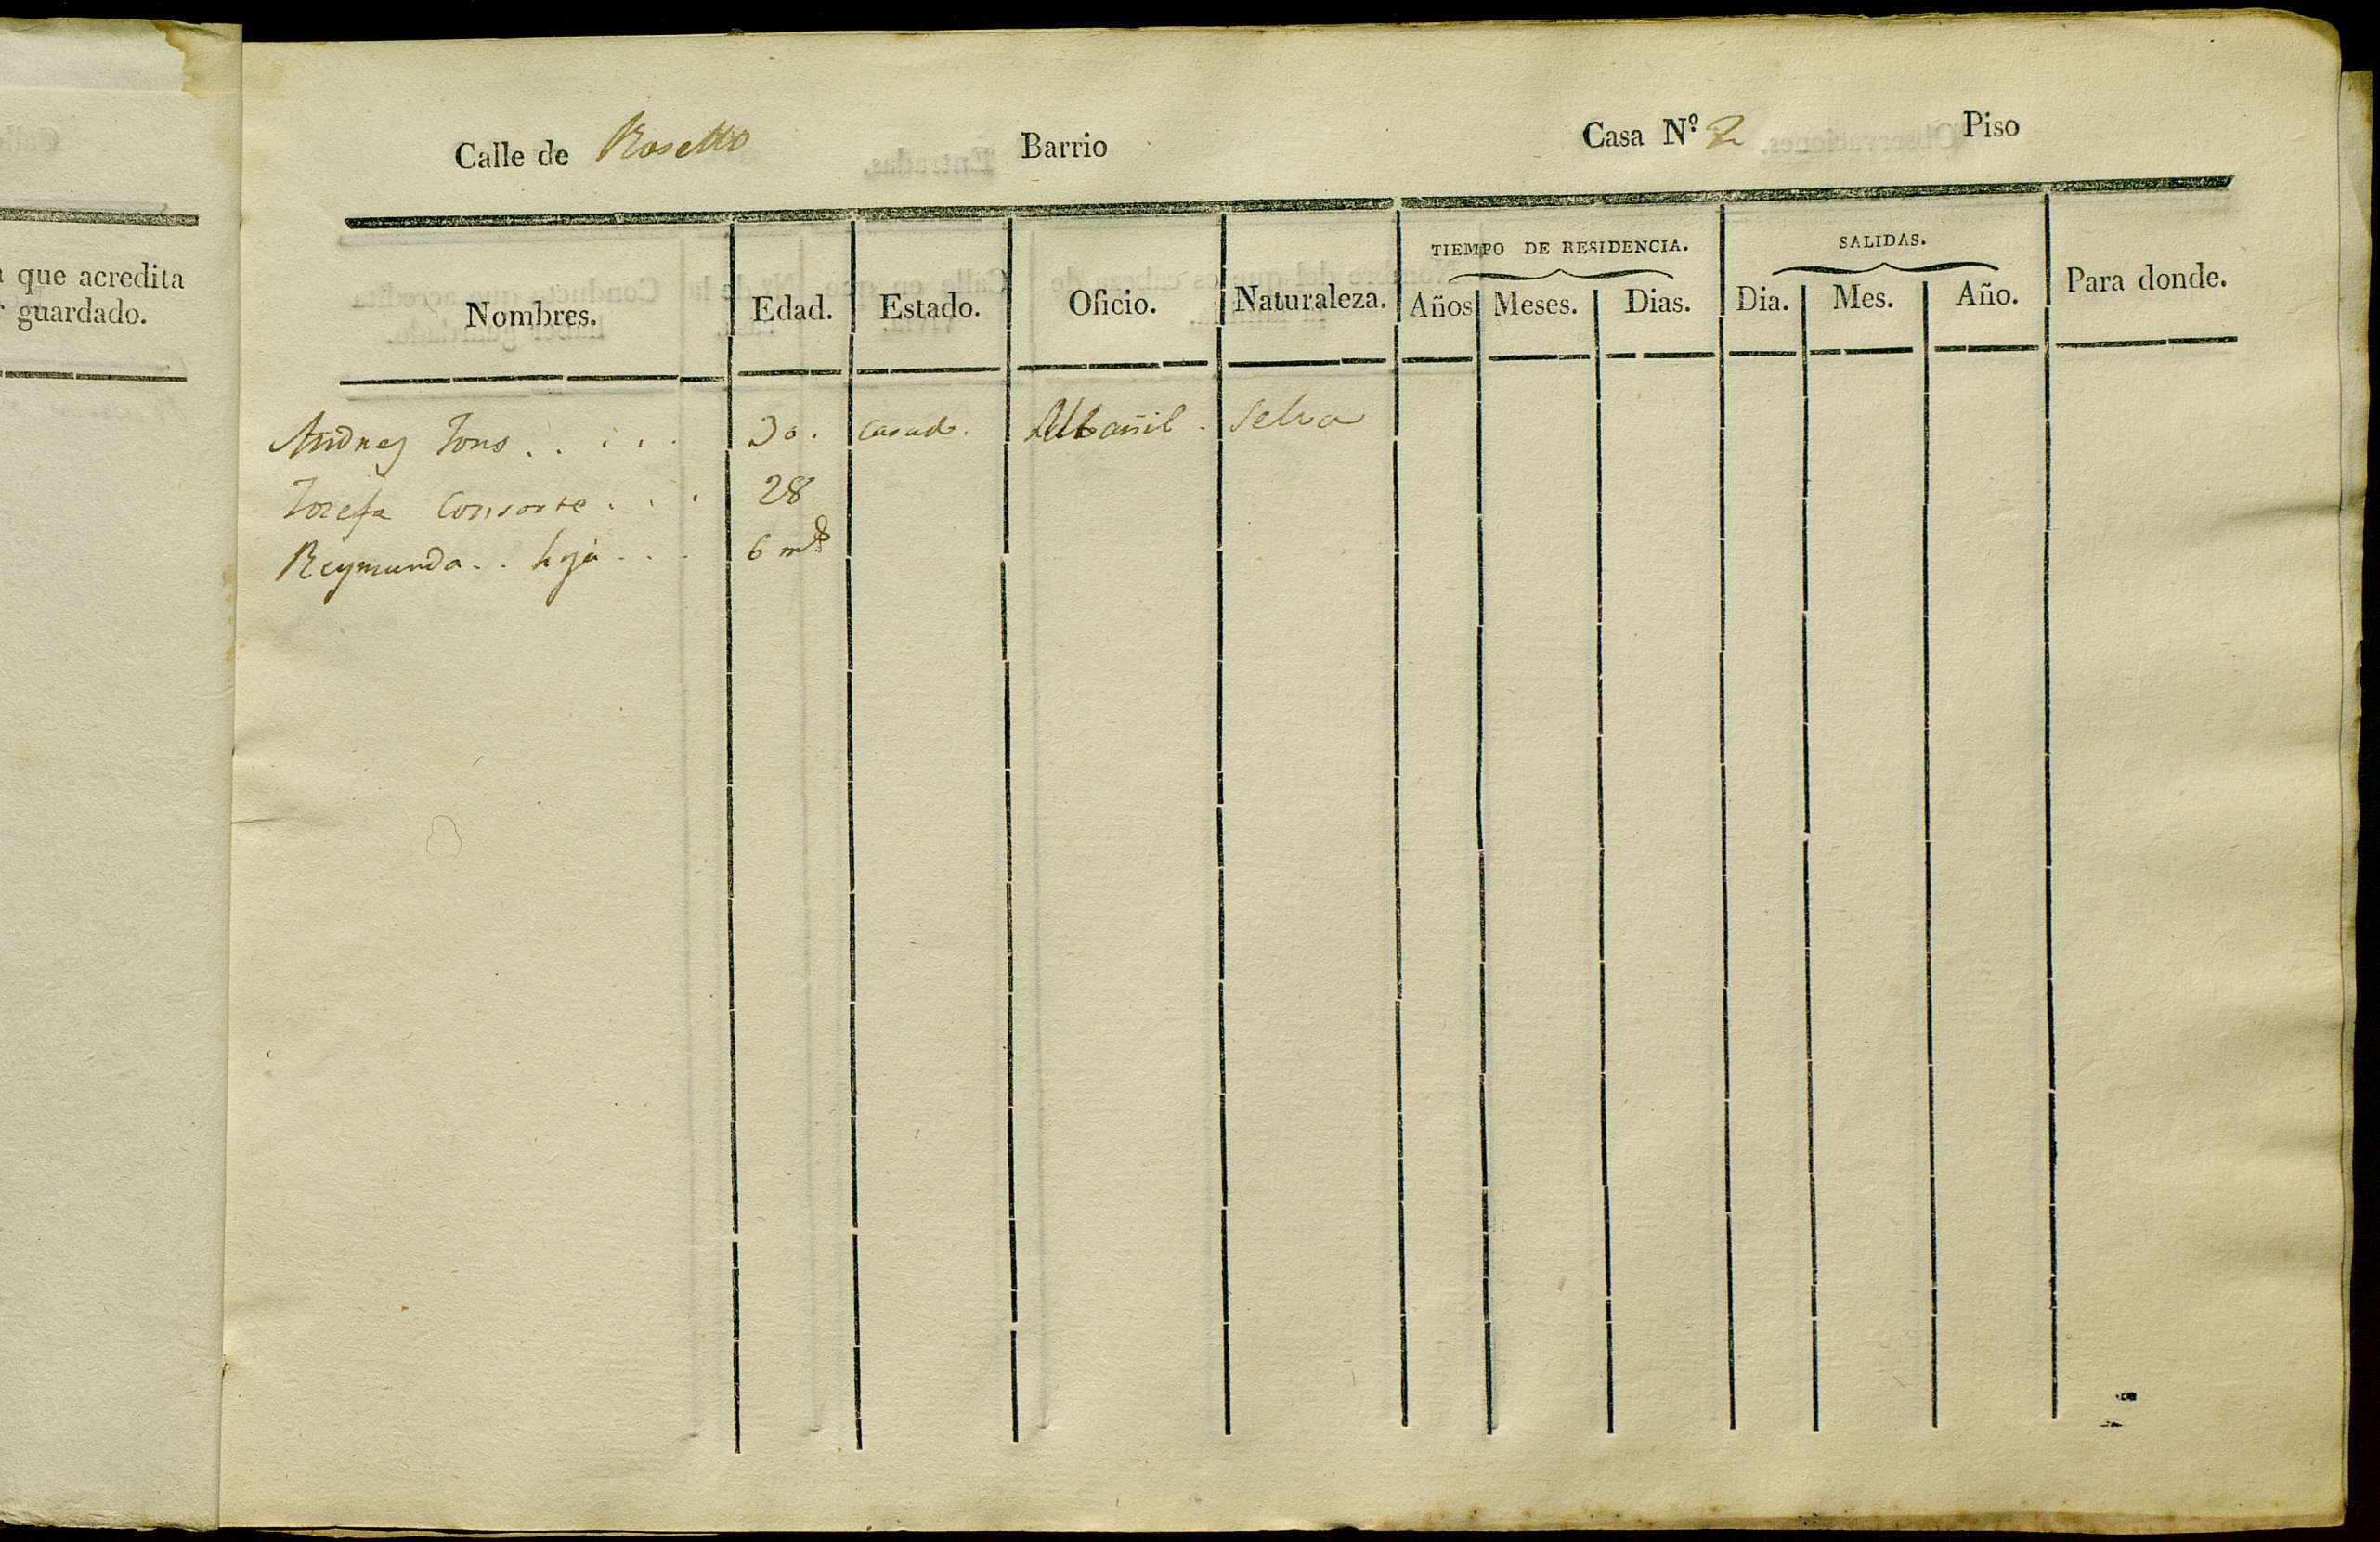 que acredita
guardado.
Calle de Rosello Barrio Casa N.º 2 Piso
TIEMPO DE RESIDENCIA. SALIDAS.
Nombres. Edad. Estado. Oficio. Naturaleza. Años Meses. Dias. Dia. Mes. Año. Para donde.
Andres Tons . . . . . 30. casado. Albañil. Selva
Josefa Consorte . . . 28
Reymunda . . hija . . . 6 ms